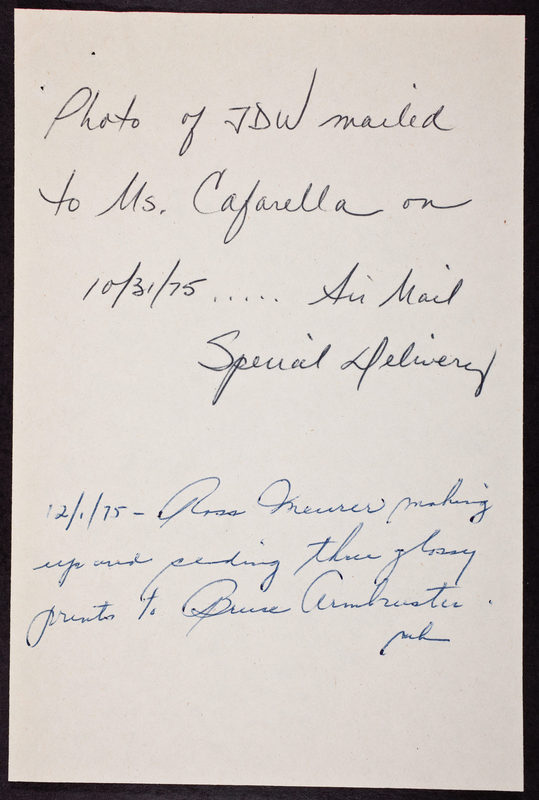 Photo of JDW mailed
to Ms. Cafarella on
10/31/75 ..... Air Mail
Special Delivery
12/1/75 - Ross Meurer making
up and sending three glossy
prints to Bruce Armbruster.